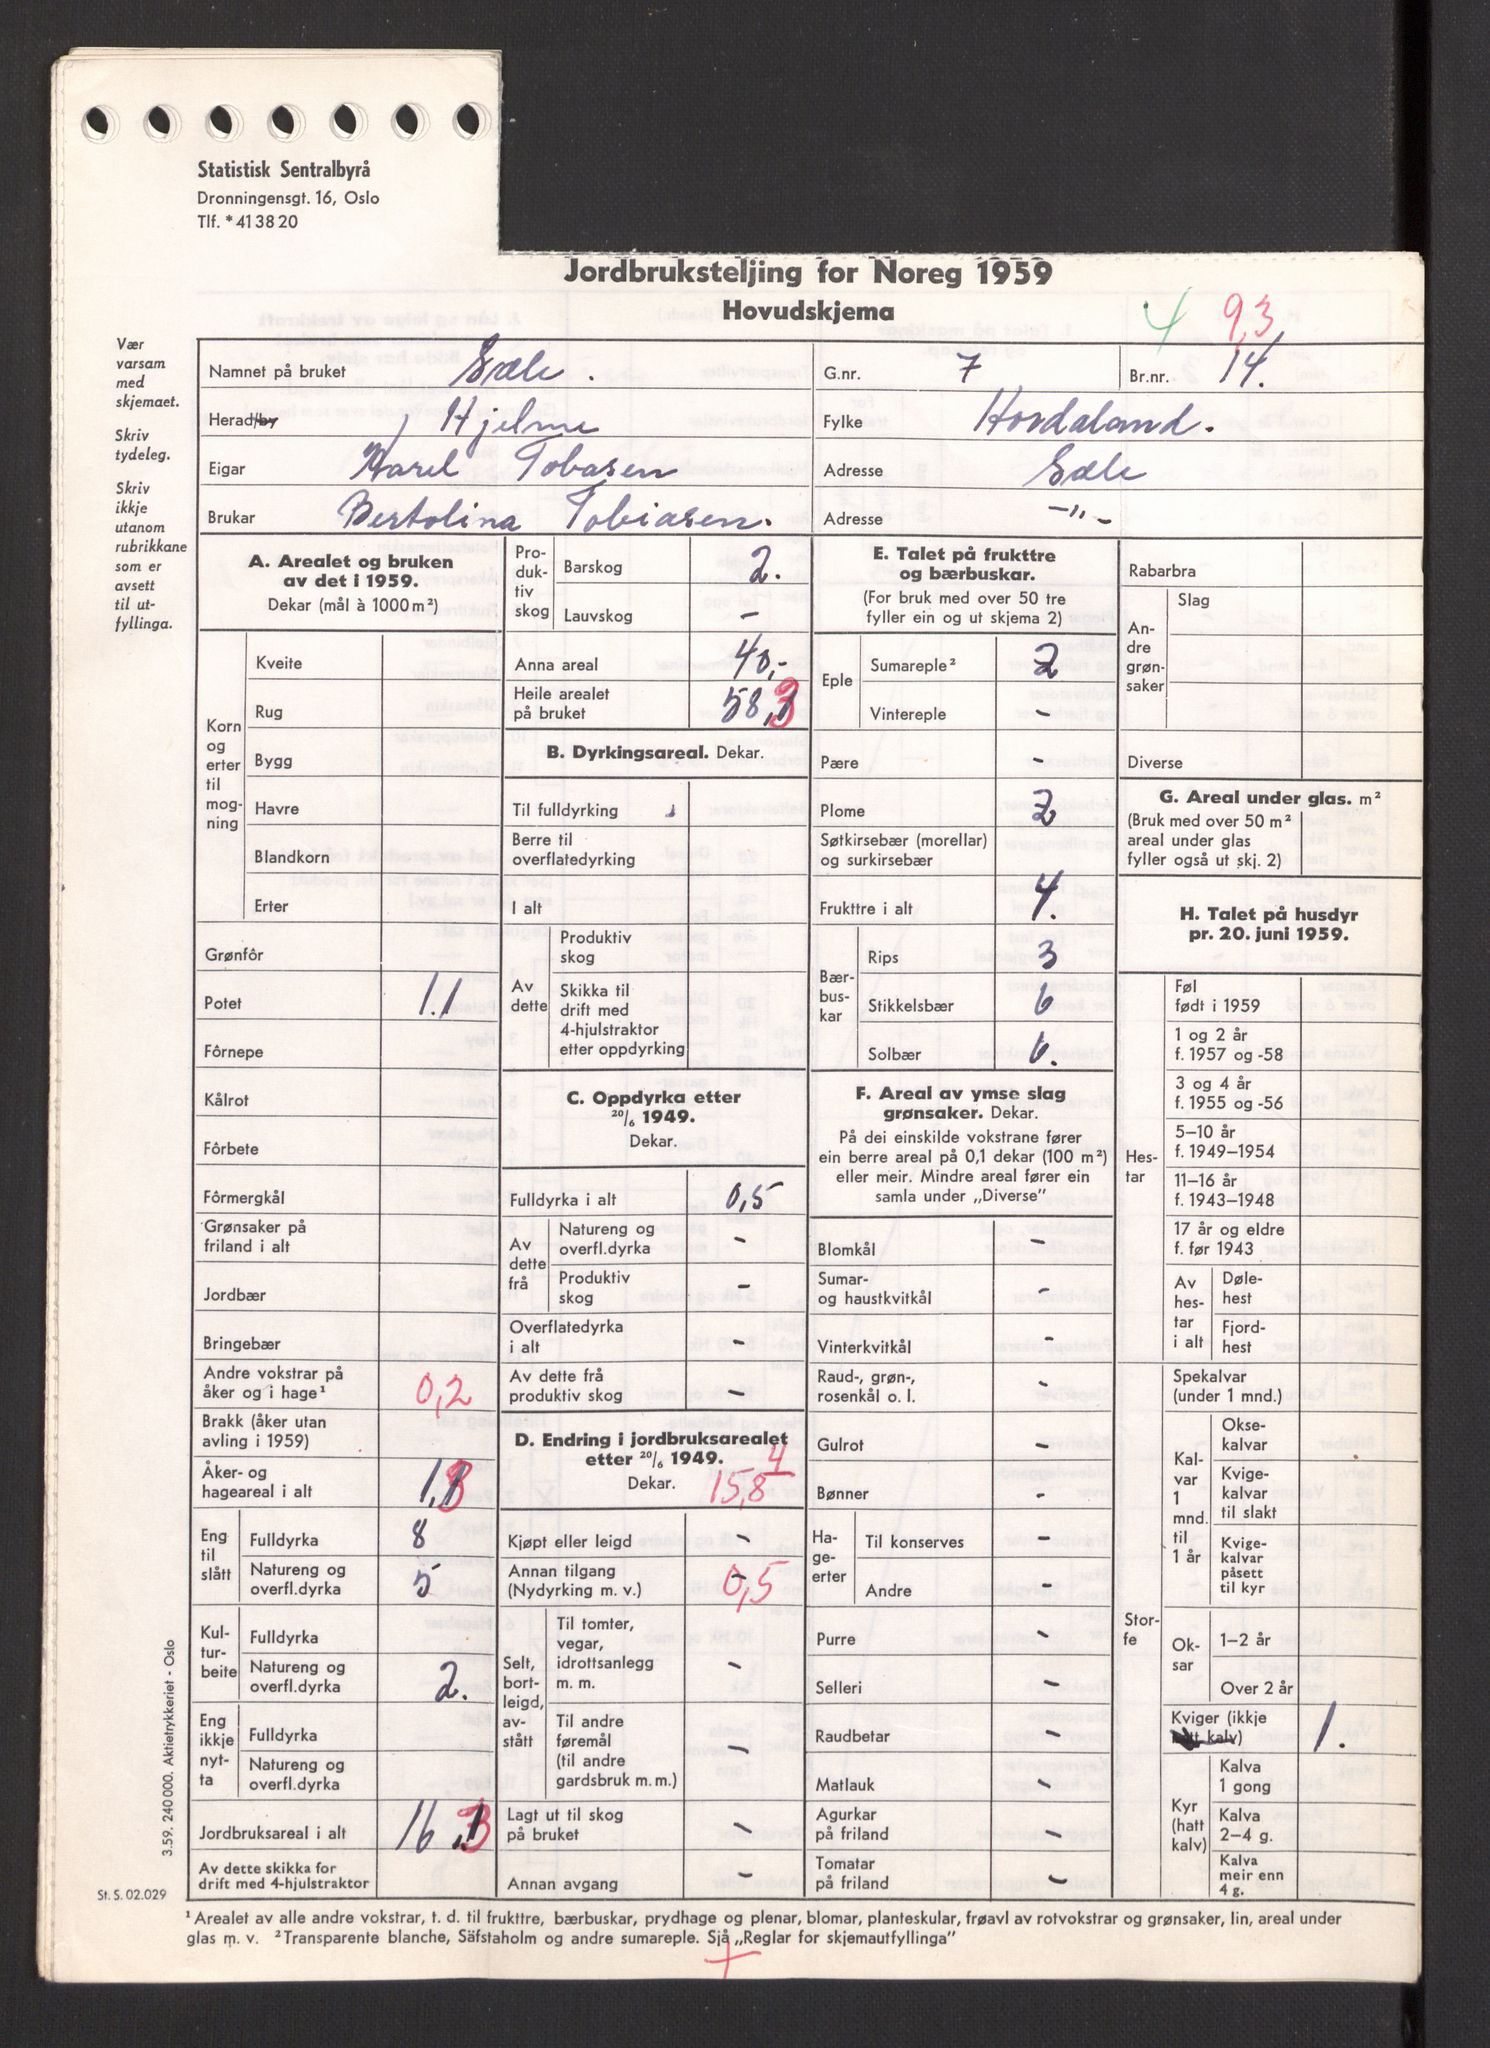 Statistisk Sentralbyrå
Dronningensgt. 16, Oslo
Tlf. *41 38 20
Jordbruksteljing for Noreg 1959
Hovudskjema
4 9,3
Vær
varsam
med
skjemaet.
Skriv
tydeleg.
Skriv
ikkje
utanom
rubrikkane
som er
avsett
til ut-
fyllinga.
Namnet på bruket Sæle. G.nr. 7 Br.nr. 14.
Herad/by Hjelme Fylke Hordaland.
Eigar Karel Tobasen Adresse Sæle
Brukar Bertolina Tobiasen. Adresse -"-
A. Arealet og bruken
av det i 1959.
Dekar (mål à 1000 m²)
Korn
og
erter
til
mog-
ning
Kveite
Rug
Bygg
Havre
Blandkorn
Erter
Grønfôr
Potet 1.1
Fôrnepe
Kålrot
Fôrbete
Fôrmergkål
Grønsaker på
friland i alt
Jordbær
Bringebær
Andre vokstrar på
åker og i hage¹ 0,2
Brakk (åker utan
avling i 1959)
Åker- og
hageareal i alt 1,13
Eng
til
slått
Fulldyrka 8
Natureng og
overfl.dyrka 5
Kul-
tur-
beite
Fulldyrka
Natureng og
overfl.dyrka 2.
Eng
ikkje
nyt-
ta
Fulldyrka
Natureng og
overfl.dyrka
Jordbruksareal i alt 16,13
Av dette skikka for
drift med 4-hjulstraktor
Pro-
duk-
tiv
skog
Barskog 2.
Lauvskog -
Anna areal 40,-
Heile arealet
på bruket 58,13
B. Dyrkingsareal. Dekar.
Til fulldyrking
Berre til
overflatedyrking
I alt
Av
dette
Produktiv
skog
Skikka til
drift med
4-hjulstraktor
etter oppdyrking
C. Oppdyrka etter
20/6 1949.
Dekar.
Fulldyrka i alt 0,5
Av
dette
frå
Natureng og
overfl.dyrka -
Produktiv
skog -
Overflatedyrka
i alt -
Av dette frå
produktiv skog -
D. Endring i jordbruksarealet
etter 20/6 1949. 4
Dekar. 15,8
Kjøpt eller leigd -
Annan tilgang
(Nydyrking m. v.) - 0,5
Selt,
bort-
leigd,
av-
stått
Til tomter,
vegar,
idrottsanlegg
m. m. -
Til andre
føremål
(til andre
gardsbruk m. m.) -
Lagt ut til skog
på bruket -
Annan avgang -
E. Talet på frukttre
og bærbuskar.
(For bruk med over 50 tre
fyller ein og ut skjema 2)
Eple
Sumareple² 2
Vintereple -
Pære -
Plome 2
Søtkirsebær (morellar)
og surkirsebær
Frukttre i alt 4.
Bær-
bus-
kar
Rips 3
Stikkelsbær 6
Solbær 6.
F. Areal av ymse slag
grønsaker. Dekar.
På dei einskilde vokstrane fører
ein berre areal på 0,1 dekar (100 m²)
eller meir. Mindre areal fører ein
samla under „Diverse”
Blomkål -
Sumar-
og haustkvitkål -
Vinterkvitkål -
Raud-, grøn-,
rosenkål o. l. -
Gulrot -
Bønner -
Ha-
ge-
erter
Til konserves -
Andre -
Purre -
Selleri -
Raudbetar -
Matlauk -
Agurkar
på friland -
Tomatar
på friland -
Rabarbra
An-
dre
grøn-
saker
Slag
Diverse
G. Areal under glas. m²
(Bruk med over 50 m²
areal under glas
fyller også ut skj. 2)
H. Talet på husdyr
pr. 20. juni 1959.
Hes-
tar
Føl
født i 1959
1 og 2 år
f. 1957 og -58
3 og 4 år
f. 1955 og -56
5–10 år
f. 1949–1954
11–16 år
f. 1943–1948
17 år og eldre
f. før 1943
Av
hes-
tar
i alt
Døle-
hest
Fjord-
hest
Stor-
fe
Spekalvar
(under 1 mnd.)
Kal-
var
1
mnd.
til
1 år
Okse-
kalvar
Kvige-
kalvar
til slakt
Kvige-
kalvar
påsett
til kyr
Ok-
sar
1–2 år
Over 2 år
Kviger (ikkje
hatt kalv) 1.
Kyr
(hatt
kalv)
Kalva
1 gong
Kalva
2–4 g.
Kalva
meir enn
4 g.
3.59. 240 000. Aktietrykkeriet - Oslo
St. S. 02.029
¹ Arealet av alle andre vokstrar, t. d. til frukttre, bærbuskar, prydhage og plenar, blomar, planteskular, frøavl av rotvokstrar og grønsaker, lin, areal under
glas m. v. ² Transparente blanche, Säfstaholm og andre sumareple. Sjå „Reglar for skjemautfyllinga”
+